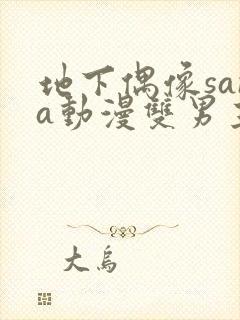 地下偶像sa
a動漫雙男
大鳥